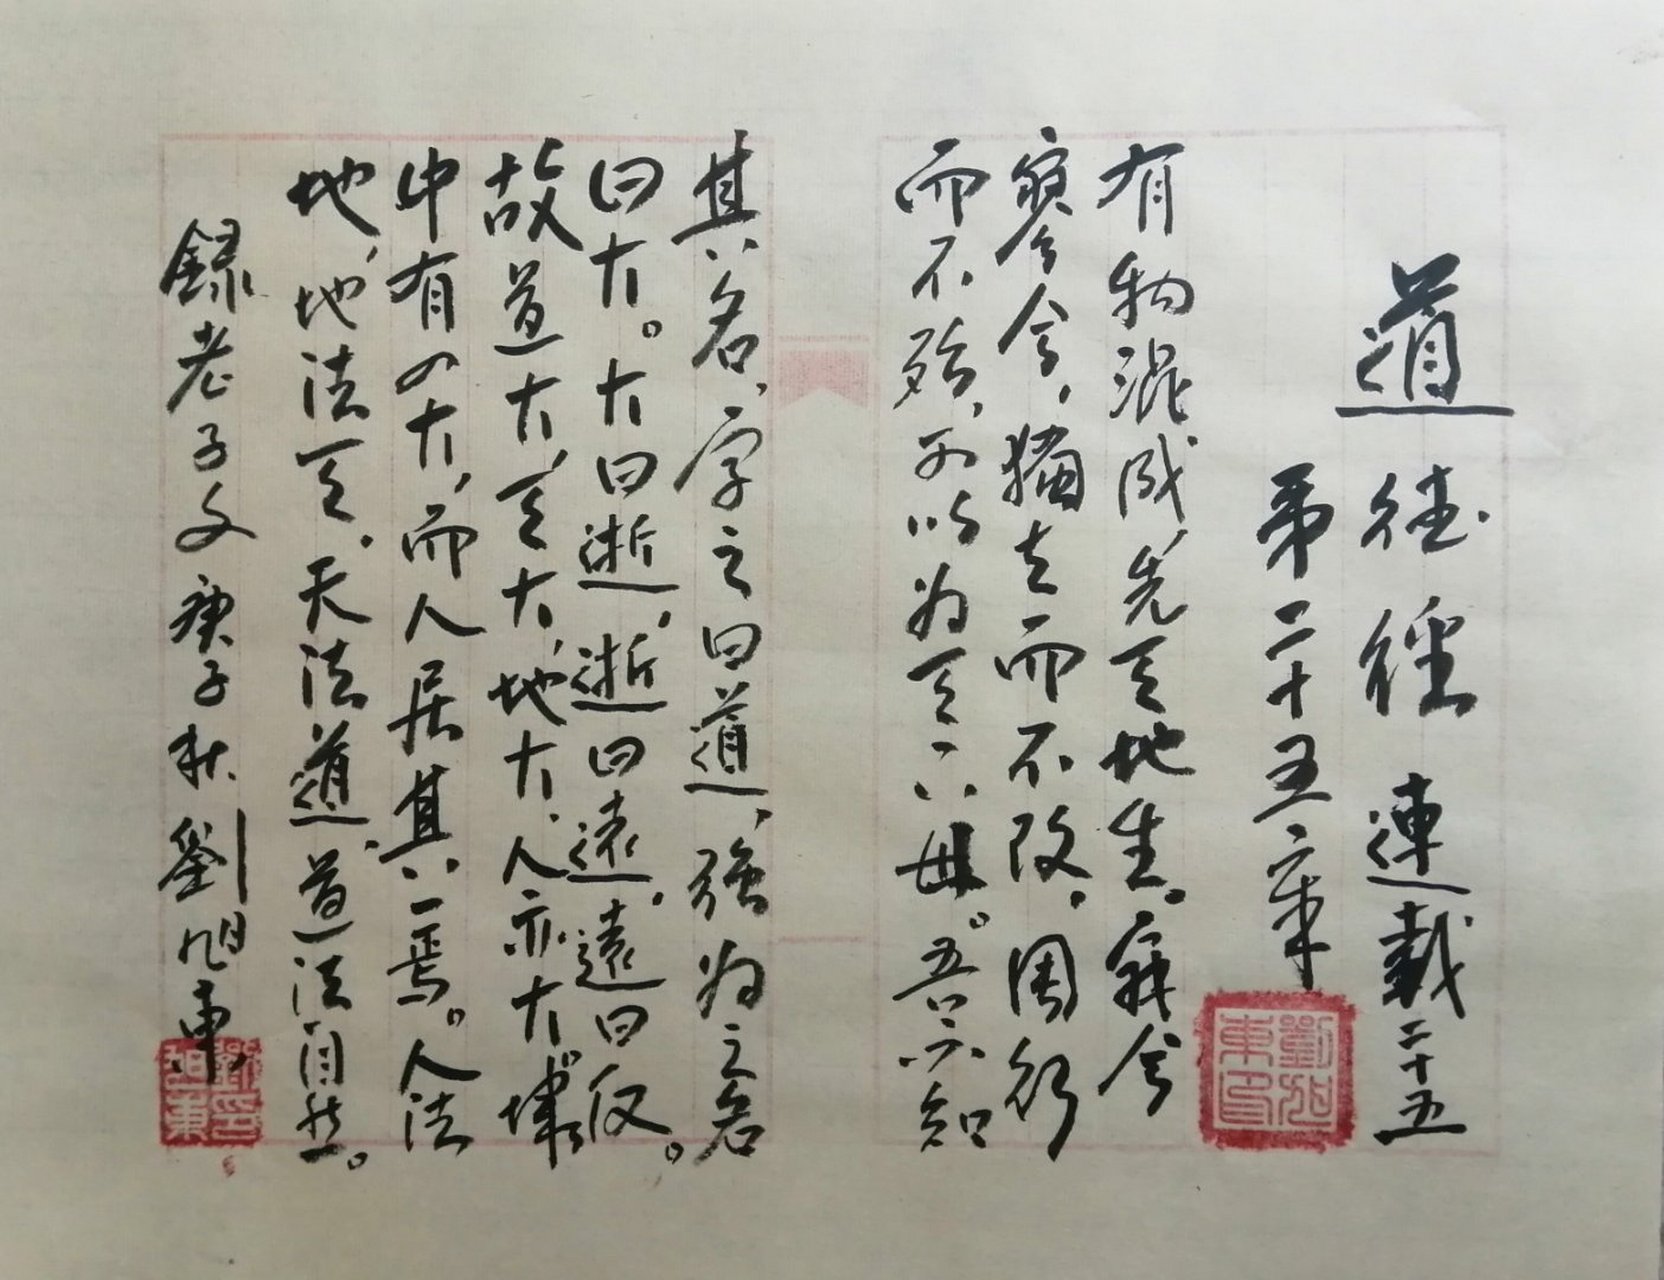 道德經連載二十五
第二十五章
劉旭東印
有物混成、先天地生。寂兮
寥兮、獨立而不改、周行
而不殆、可以为天下母。吾不知
其名、字之曰道、强为之名
曰大。大曰逝、逝曰遠、遠曰反。
故道大、天大、地大、人亦大。域
中有四大、而人居其一焉。人法
地、地法天、天法道、道法自然。
錄老子文庚子秋劉旭東
劉旭東印